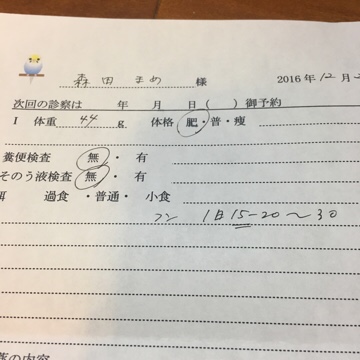 森田 まめ 様 2016年12月
次回の診察は 年 月 日( ) 御予約
I 体重 44 g 体格 肥・普・痩
糞便検査 無・有
そのう液検査 無・有
餌 過食・普通・小食
フン 1日15-20〜30
の内容